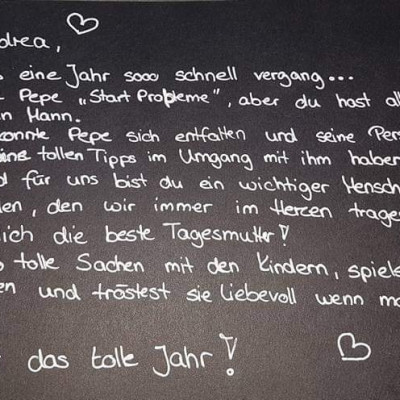 drea,
eine Jahr sooo schnell vergang...
Pepe „Start Probleme", aber du hast al
n Mann.
konnte Pepe sich entfalten und seine Pers
eine tollen Tipps im Umgang mit ihm haber
d für uns bist du ein wichtiger Mensch
en, den wir immer im Herzen trage
lich die beste Tagesmutter!
tolle Sachen mit den Kindern, spiels
en und tröstest sie liebevoll wenn ma
das tolle Jahr!